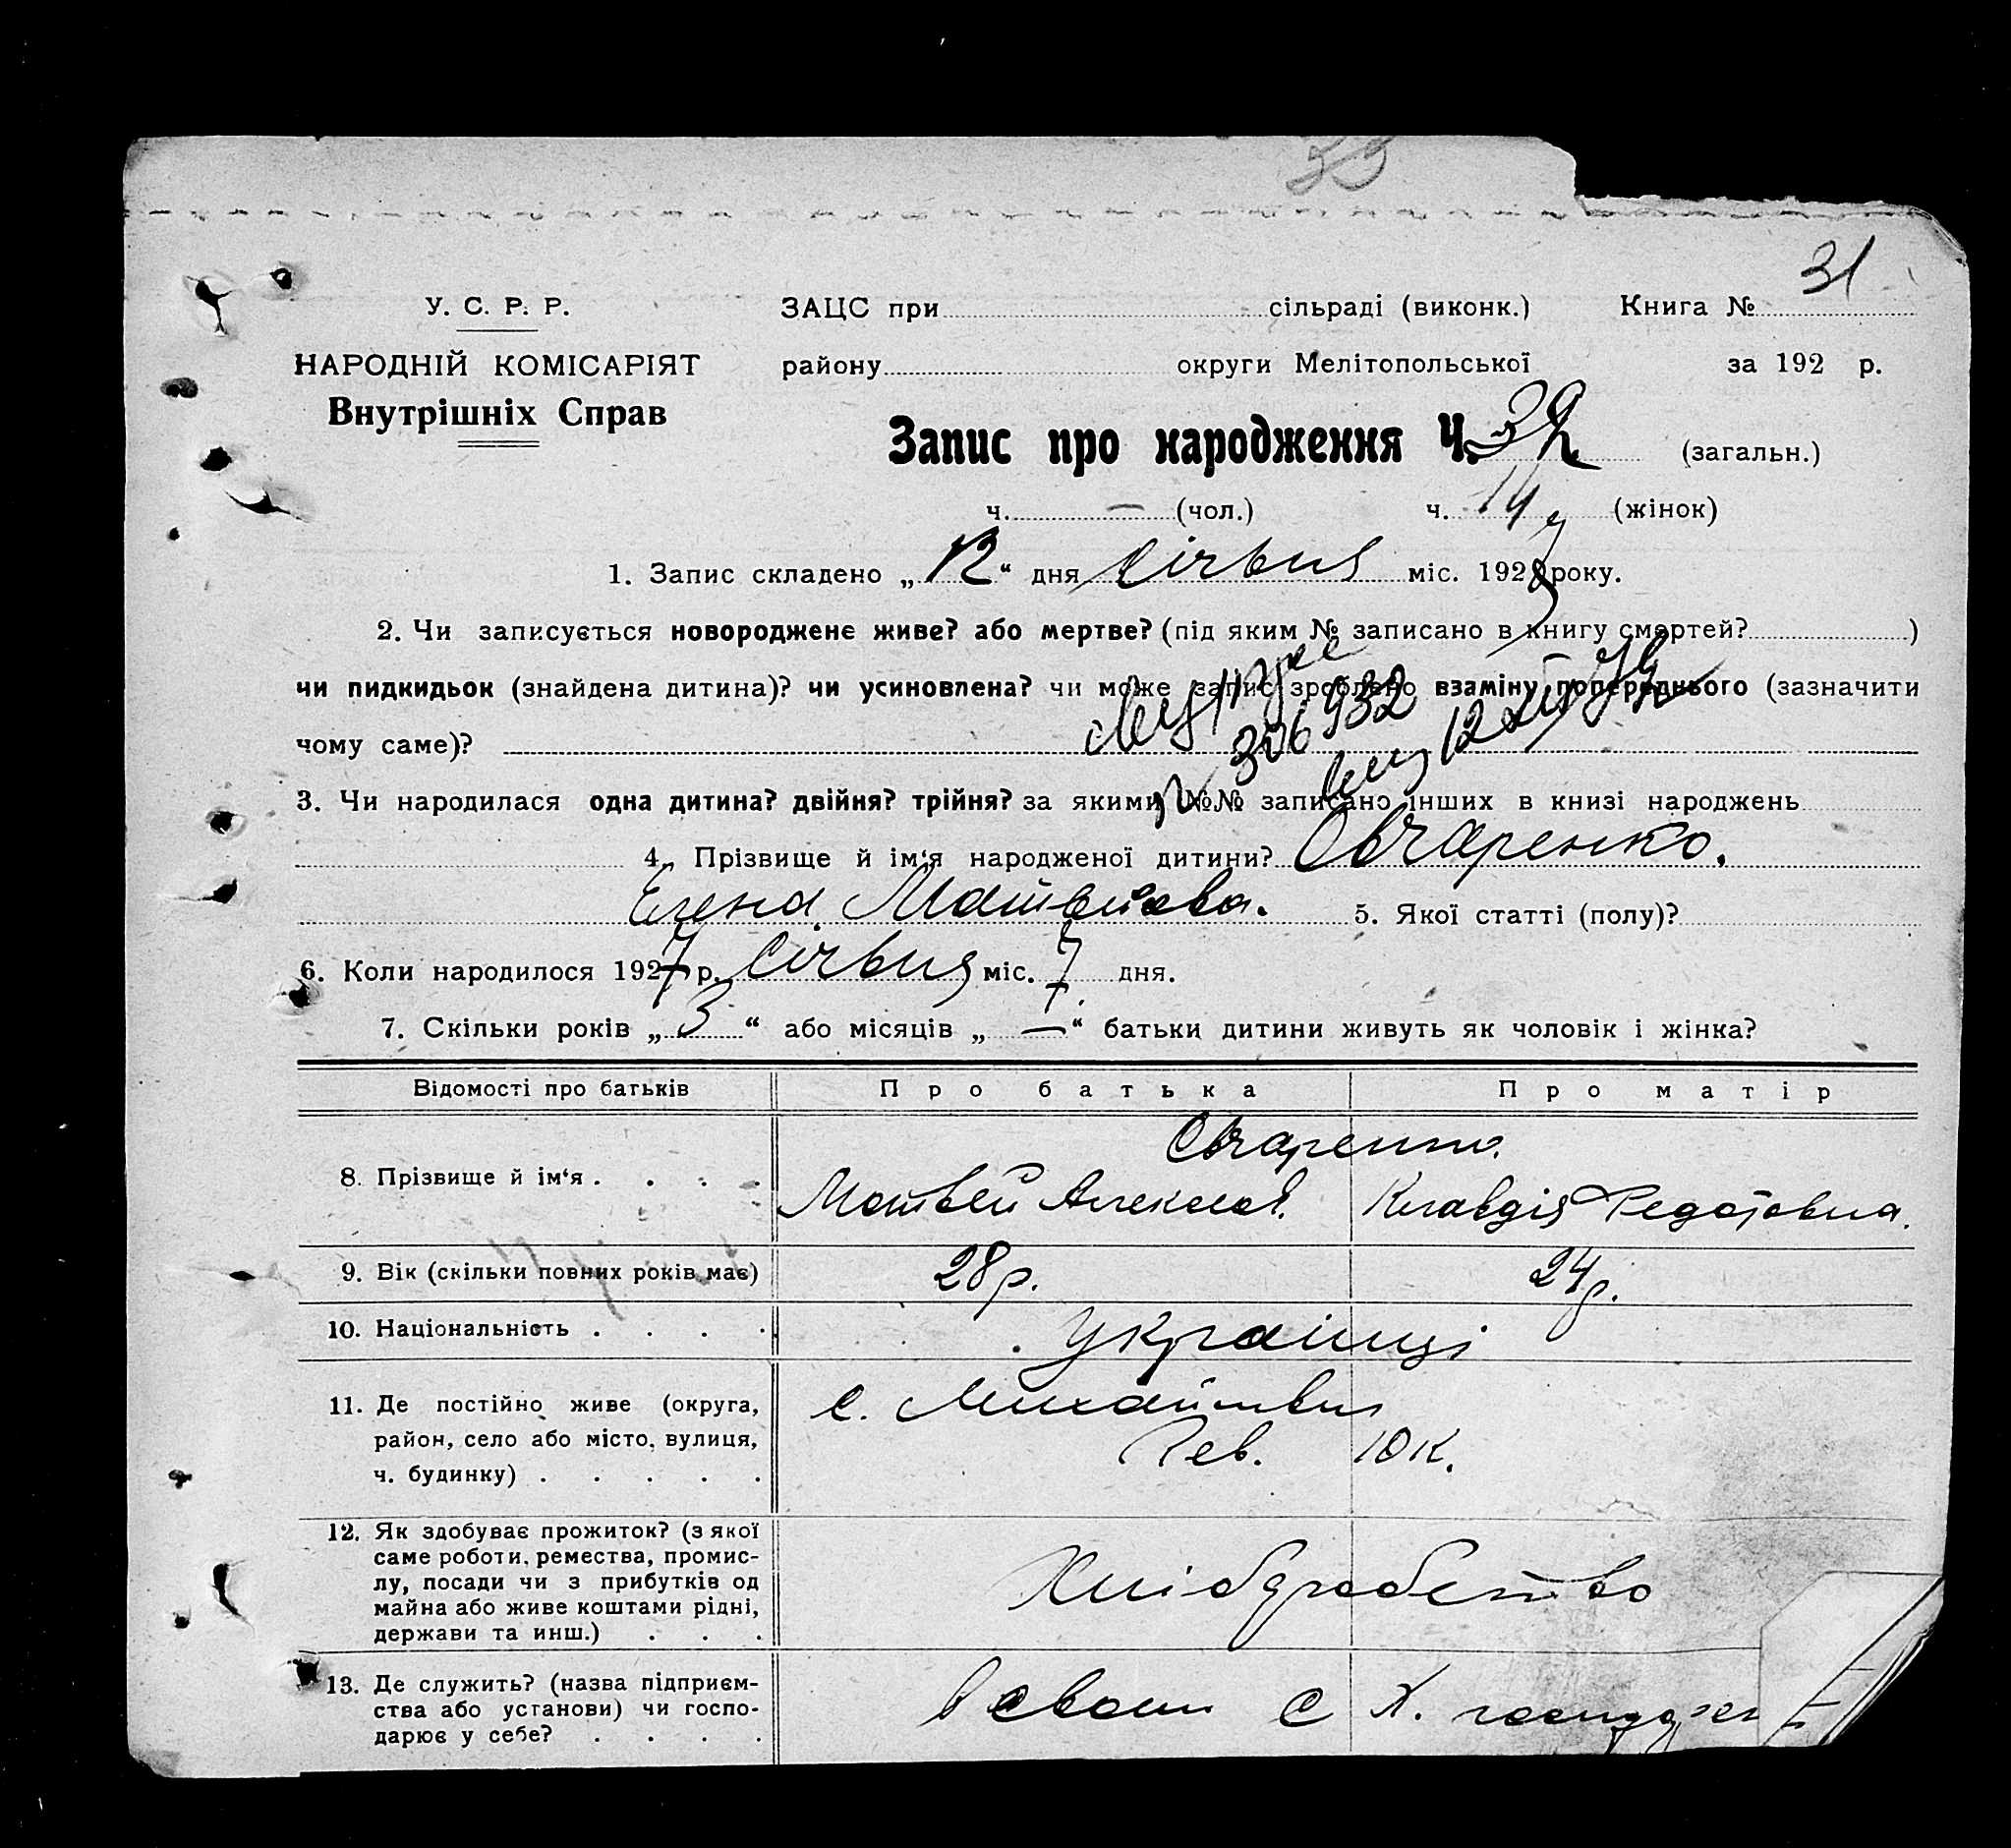 33
31
У. С. Р. Р.
ЗАЦС при сільраді (виконк.) Книга №
НАРОДНІЙ КОМІСАРІЯТ
району округи Мелітопольської за 192 р.
Внутрішніх Справ
Запис про народження Ч. 32 (загальн.)
ч. — (чол.) ч. 14 (жінок)
1. Запис складено „12“ дня Січня міс. 1928 року.
2. Чи записується новороджене живе? або мертве? (під яким № записано в книгу смертей? )
чи пидкидьок (знайдена дитина)? чи усиновлена? чи може запис зроблено взаміну попереднього (зазначити
чому саме)?
306932
12
3. Чи народилася одна дитина? двійня? трійня? за якими №№ записано інших в книзі народжень
4. Прізвище й ім‘я народженої дитини? Овчаренко.
Елена Матвеева. 5. Якої статті (полу)?
6. Коли народилося 1927 р. Січня міс. 7 дня.
7. Скільки років „3“ або місяців „—“ батьки дитини живуть як чоловік і жінка?
Відомості про батьків Про батька Про матір
Овчаренко.
8. Прізвище й ім‘я . . . .
Матвей Алексеев. Клавдія Федотовна.
9. Вік (скільки повних років має) 28 р. 24 р.
10. Національність . . . . Українці
11. Де постійно живе (округа,
район, село або місто, вулиця,
ч. будинку) . . . . .
с. Михайлівка
10 к.
12. Як здобуває прожиток? (з якої
саме роботи, ремества, промис-
лу, посади чи з прибутків од
майна або живе коштами рідні,
держави та инш.) . . .
Хліборобство
13. Де служить? (назва підприєм-
ства або установи) чи госпо-
дарює у себе? . . . .
в своем С Х.